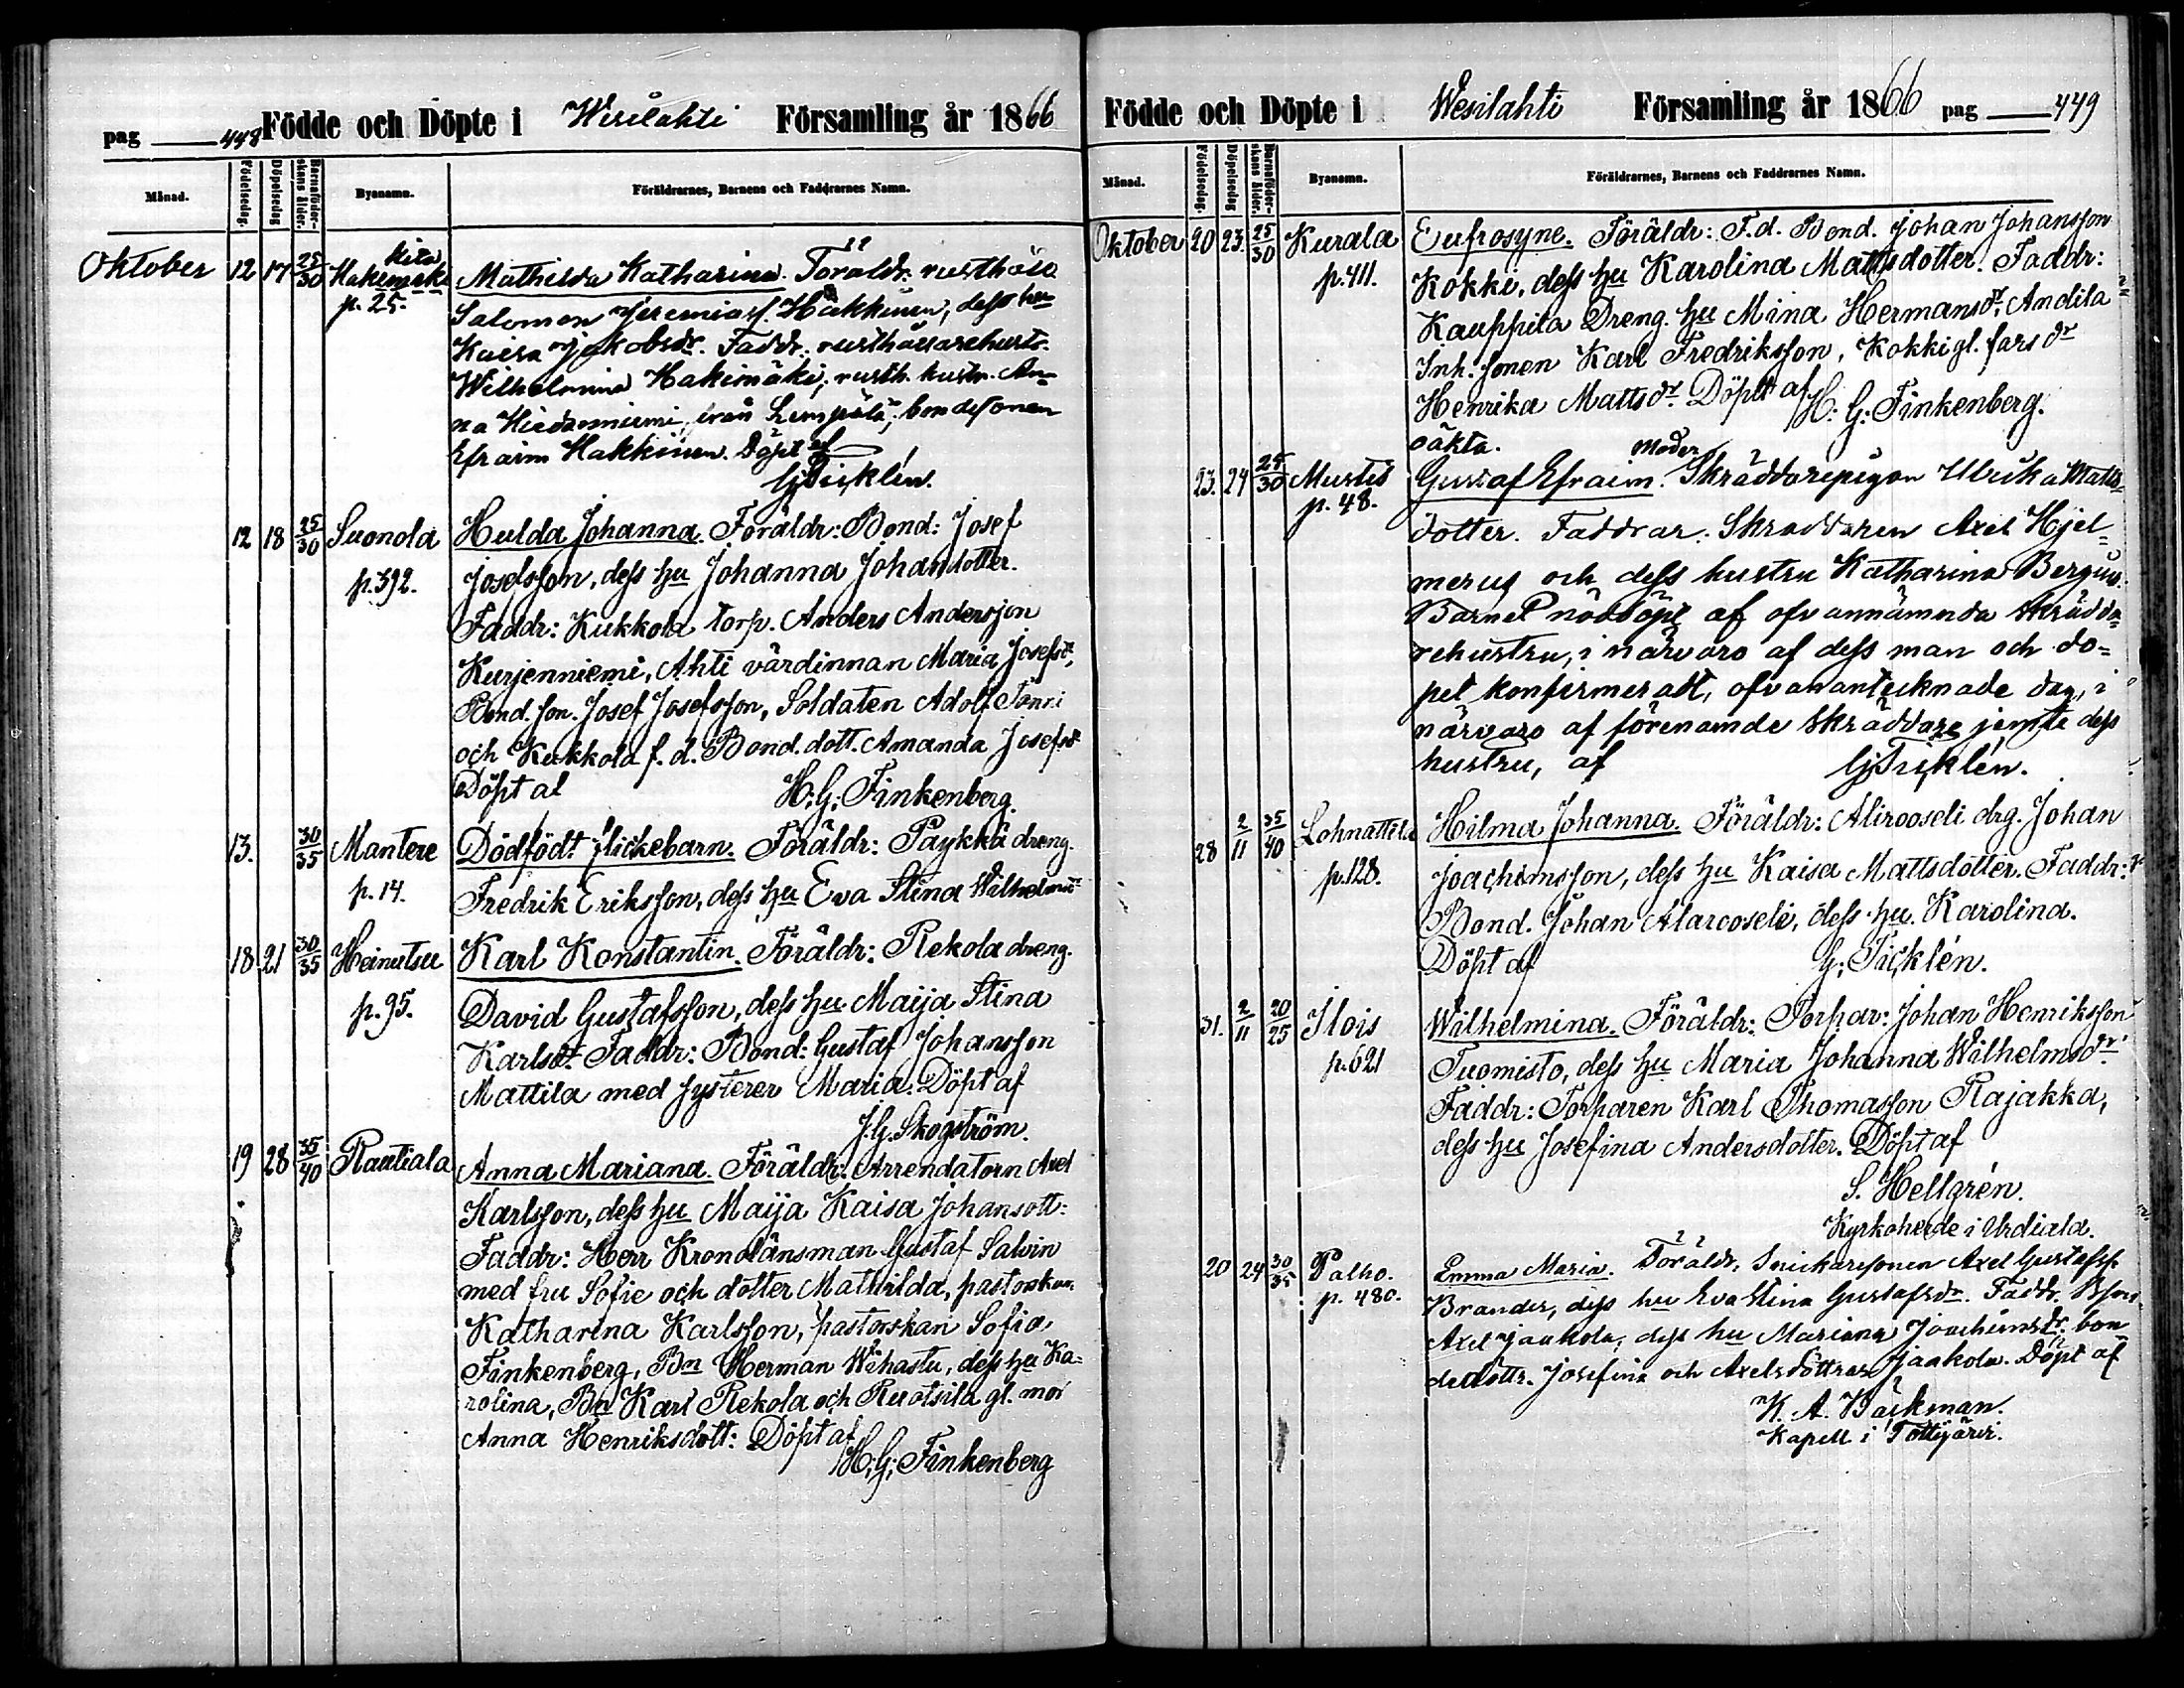 pag 448 Födde och Döpte i Wesilahti Församling år 1866
Månad. Födelsedag. Döpelsedag Barnaföderskans ålder. Byanamn. Föräldrarnes, Barnens och Faddrarnes Namn.
Oktober 12 17 25/30 Hakimäki Mathilda Katharina. Föräldr. rusthåll.
p. 25. Salomon Jeremiass. Häkkinen, dess hu
Kaisa Jakobsdr. Faddr. rusthållarehustr.
Wilhelmina Hakimäki, rusth. hustr. An-
na Hiidenniemi, från Lempälä, bondesonen
Efraim Hakkinen. Döpt af
G Ticklén.
12 18 25/30 Suonola Hulda Johanna. Föräldr: Bond: Josef
p. 392. Josefsson, dess hu Johanna Johansdotter.
Faddr: Kukkola torp. Anders Andersson
Kurjenniemi, Ahti värdinnan Maria Josefsdr,
Bond. son. Josef Josefsson, Soldaten Adolf Tanri
och Kukkola f. d. Bond. dott. Amanda Josefsdr
Döpt af H: G: Finkenberg.
13. 30/35 Mantere Dödfödt flickebarn. Föräldr: Paykkä dreng.
p. 14. Fredrik Eriksson, dess hu Eva Stina Wilhelmsdr
18 21 30/35 Heinutsu Karl Konstantin. Föräldr: Rekola dreng.
p. 95. David Gustafsson, dess hu Maija Stina
Karlsdr. Faddr: Bond: Gustaf Johansson
Mattila med systeren Maria. Döpt af
J. G. Skogström.
19 28 35/40 Rautiala Anna Mariana. Föräldr: Arrendatorn Axel
Karlsson, dess hu Maija Kaisa Johansdott:
Faddr: Herr Kronolänsman Gustaf Salvin
med fru Sofie och dotter Mathilda, pastorskan
Katharina Karlsson, pastorskan Sofia
Finkenberg, Bn Herman Wihastu, dess hu Ka-
rolina, Bn Karl Rekola och Ruotsila gl. mor
Anna Henriksdott: Döpt af
H. G: Finkenberg
Födde och Döpte i Wesilahti Församling år 1866 pag 449
Månad. Födelsedag. Döpelsedag Barnaföderskans ålder. Byanamn. Föräldrarnes, Barnens och Faddrarnes Namn.
Oktober 20 23. 25/30 Kurala Eufrosyne. Föräldr: F.d. Bond. Johan Johansson
p. 411. Kokki, dess hu Karolina Mattsdotter. Faddr:
Kauppila Dreng. hu Mina Hermansdr, Andila
Inh. sonen Karl Fredriksson, Kokki gl. fars dr
Henrika Mattsdr. Döpt af H. G: Finkenberg.
oäkta.
23. 24 25/30 Mustis Gustaf Efraim. Moder Skräddarepigan Ulrika Matts-
p. 48. dotter. Faddrar: Skräddaren Axel Hjel-
merus och dess hustru Katharina Bergius.
Barnet nöddöpt af ofvannämnda skrädda-
rehustru, i närvaro af dess man och do-
pet konfirmeradt, ofvanantecknade dag, i
närvaro af förenämde Skräddare jemte dess
hustru, af G Ticklén.
28 2/11 35/40 Lohnattila Hilma Johanna. Föräldr: Alirooseli drg. Johan
p. 128. Joachimsson, dess hu Kaisa Mattsdotter. Faddr:
Bond. Johan Alarooseli, dess hu. Karolina.
Döpt af G: Ticklén.
31. 2/11 20/25 Ilois Wilhelmina. Föräldr: Torpar: Johan Henriksson
p. 621 Tuomisto, dess hu Maria Johanna Wilhelmsdr.
Faddr: Torparen Karl Thomasson Rajakka,
dess hu Josefina Andersdotter. Döpt af
S. Hellgrén.
Kyrkoherde i Urdiala.
20 24 30/35 Palho. Emma Maria. Föräldr. Snickaresonen Axel Gustafss.
p. 480. Brander, dess hu Eva Stina Gustafsdr. Faddr. Bson
Axel Jaakola, dess hu Mariana Joachimsdr, bon-
dedottr. Josefina och Axelsdottrar Jaakola. Döpt af
K. A. Bäckman.
Kapell. i Tottijärvi.